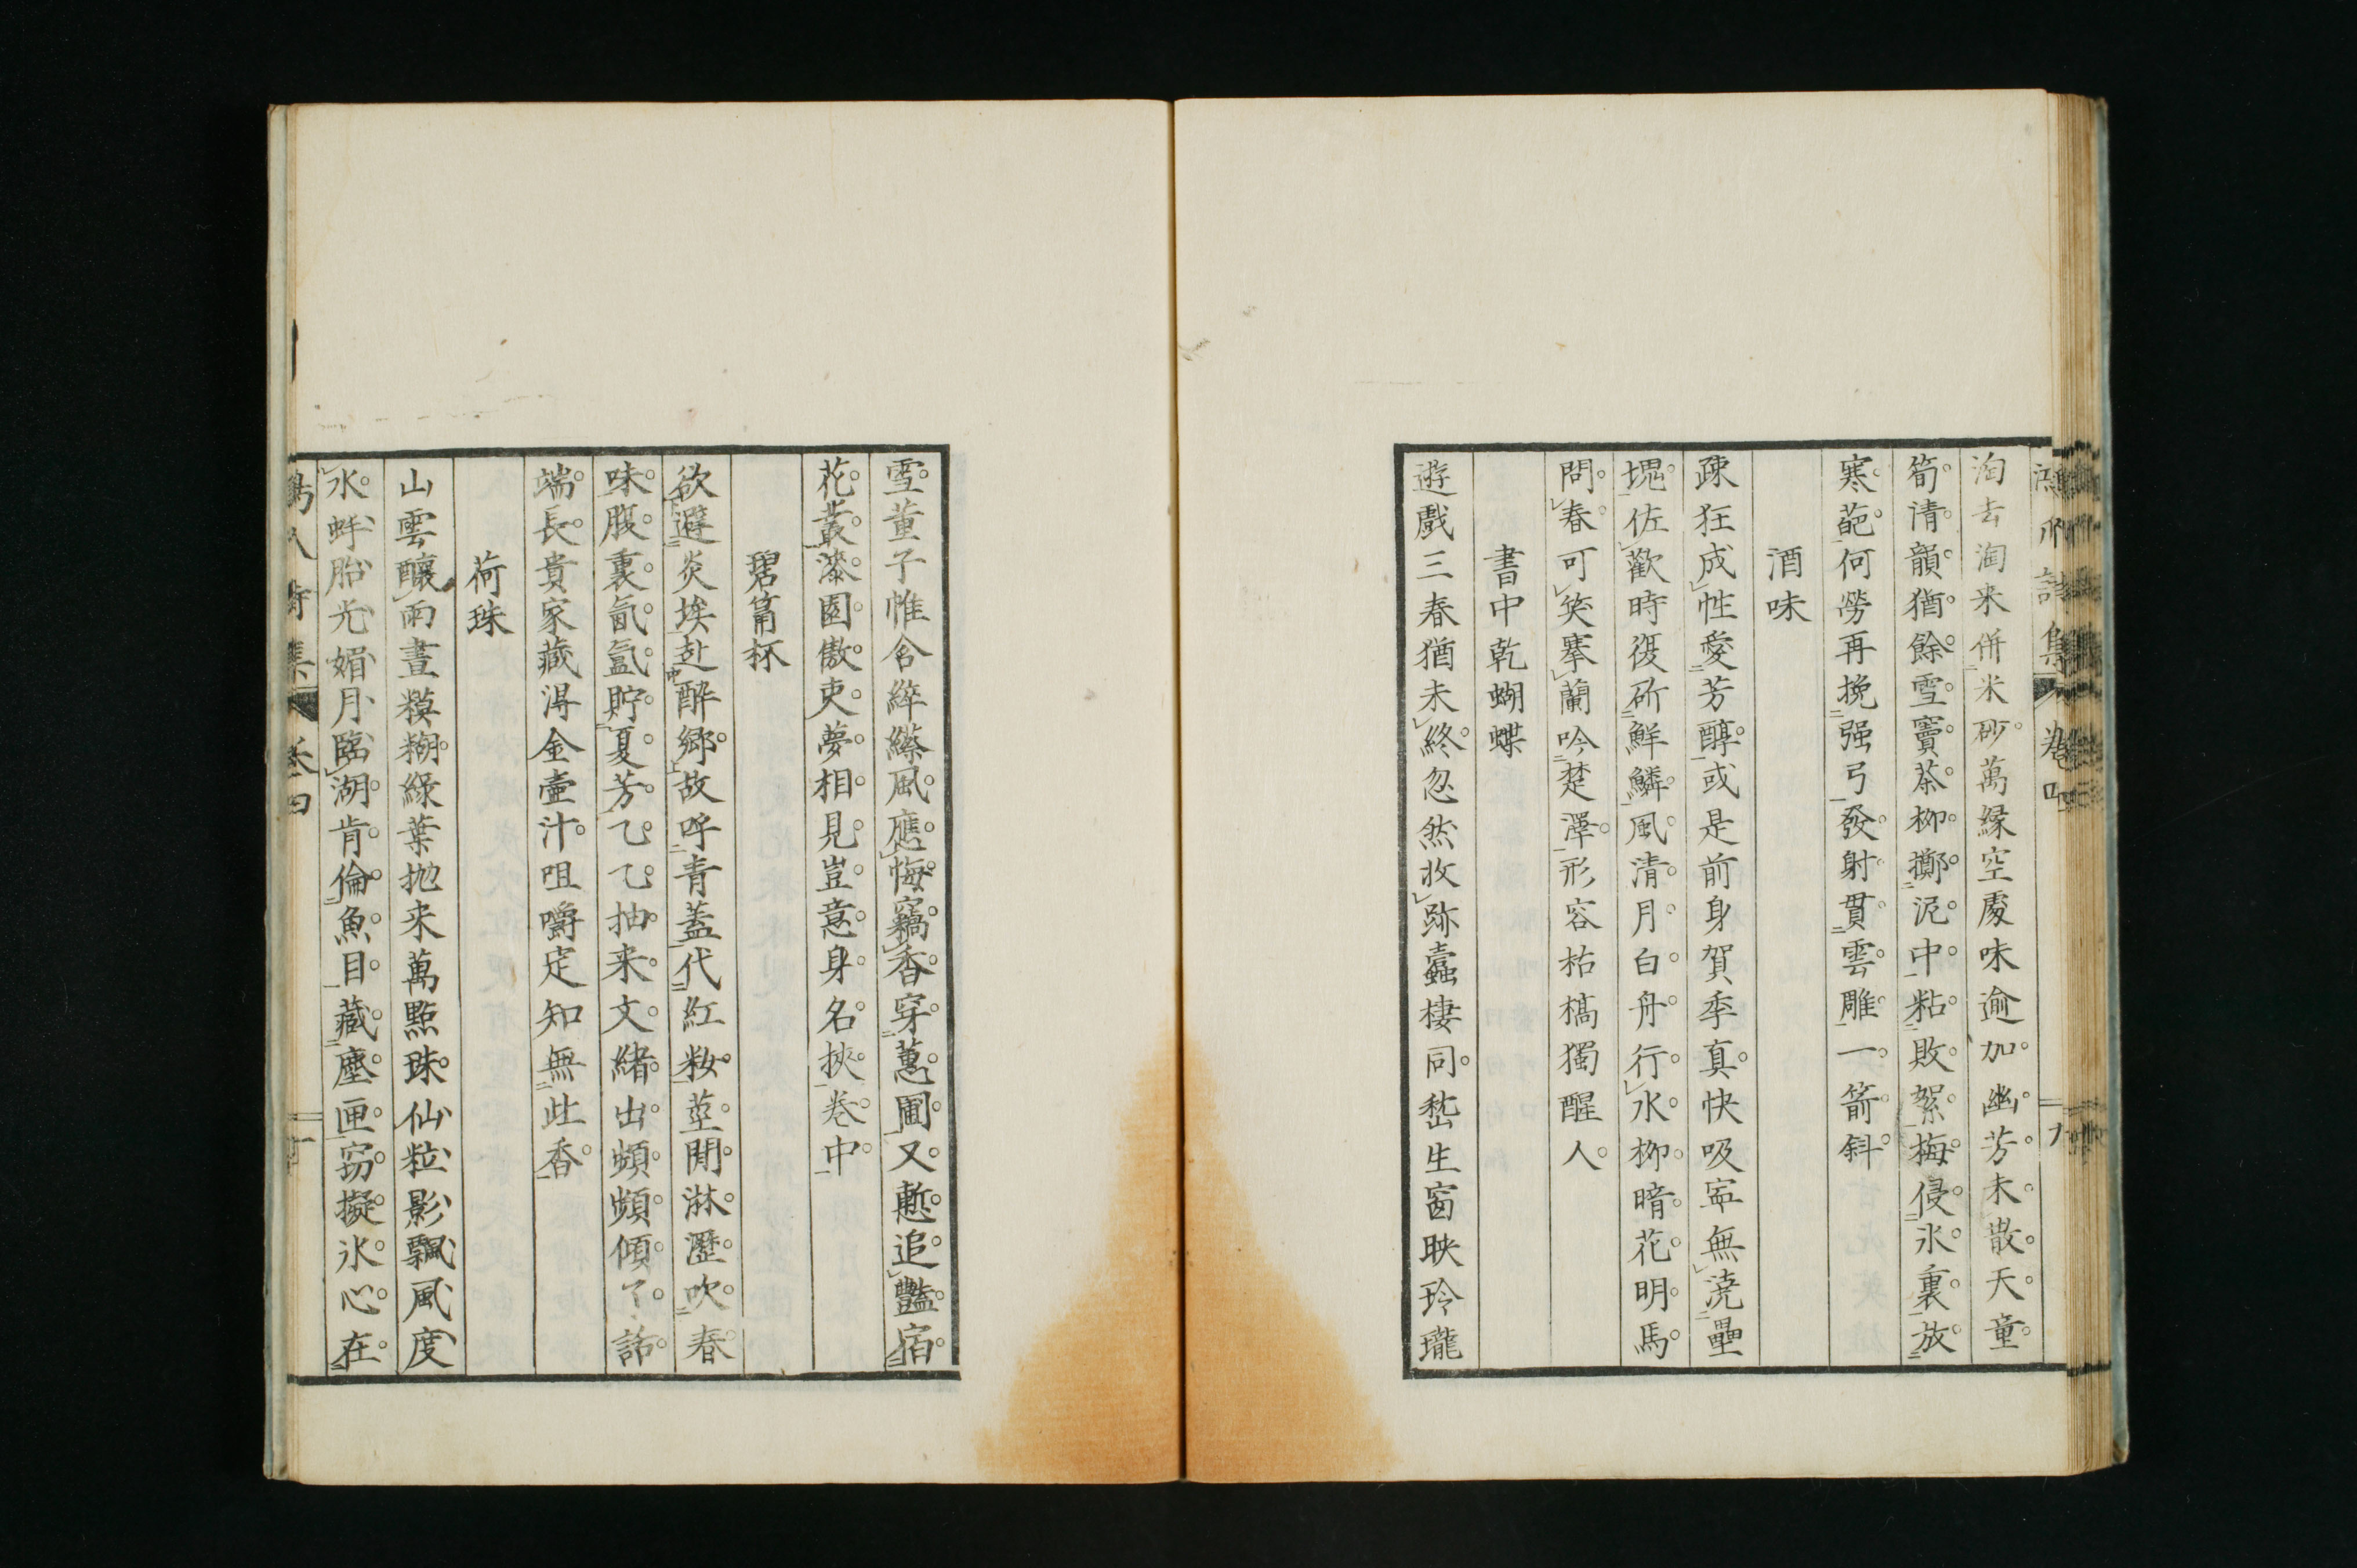 集 卷四 九
淘去淘来併米砂萬緑空處味逾加幽芳未散天童
筍清韻猶餘雪竇茶柳擲泥中粘敗絮梅侵氷裏放
寒葩何勞再挽强弓發射貫雲雕一箭斜
酒味
疎狂成性愛芳醇或是前身賀季真快吸寧無澆壘
塊佐歡時復斫鮮鱗風清月白舟行水柳暗花明馬
問春可笑搴蘭吟楚澤形容枯槁獨醒人
書中乾蝴蝶
遊戲三春猶未終忽然收跡蠹棲同嵆生窗映玲瓏
雪董子帷含綷縩風應悔竊香穿蕙圃又慙追豔宿
花叢漆園傲吏夢相見豈意身名挾卷中
碧筩杯
欲避炎埃赴酔鄉故呼青蓋代紅粧莖開淋瀝吹春
味腹裏氤氳貯夏芳乙乙抽来文緒出頻頻傾了話
端長貴家藏淂金壷汁咀嚼定知無此香
荷珠
山雲釀雨晝糢糊緑葉抛来萬點珠仙粒影飄風度
水蚌胎光媚月臨湖肯倫魚目藏塵匣窃擬氷心在
集 卷四